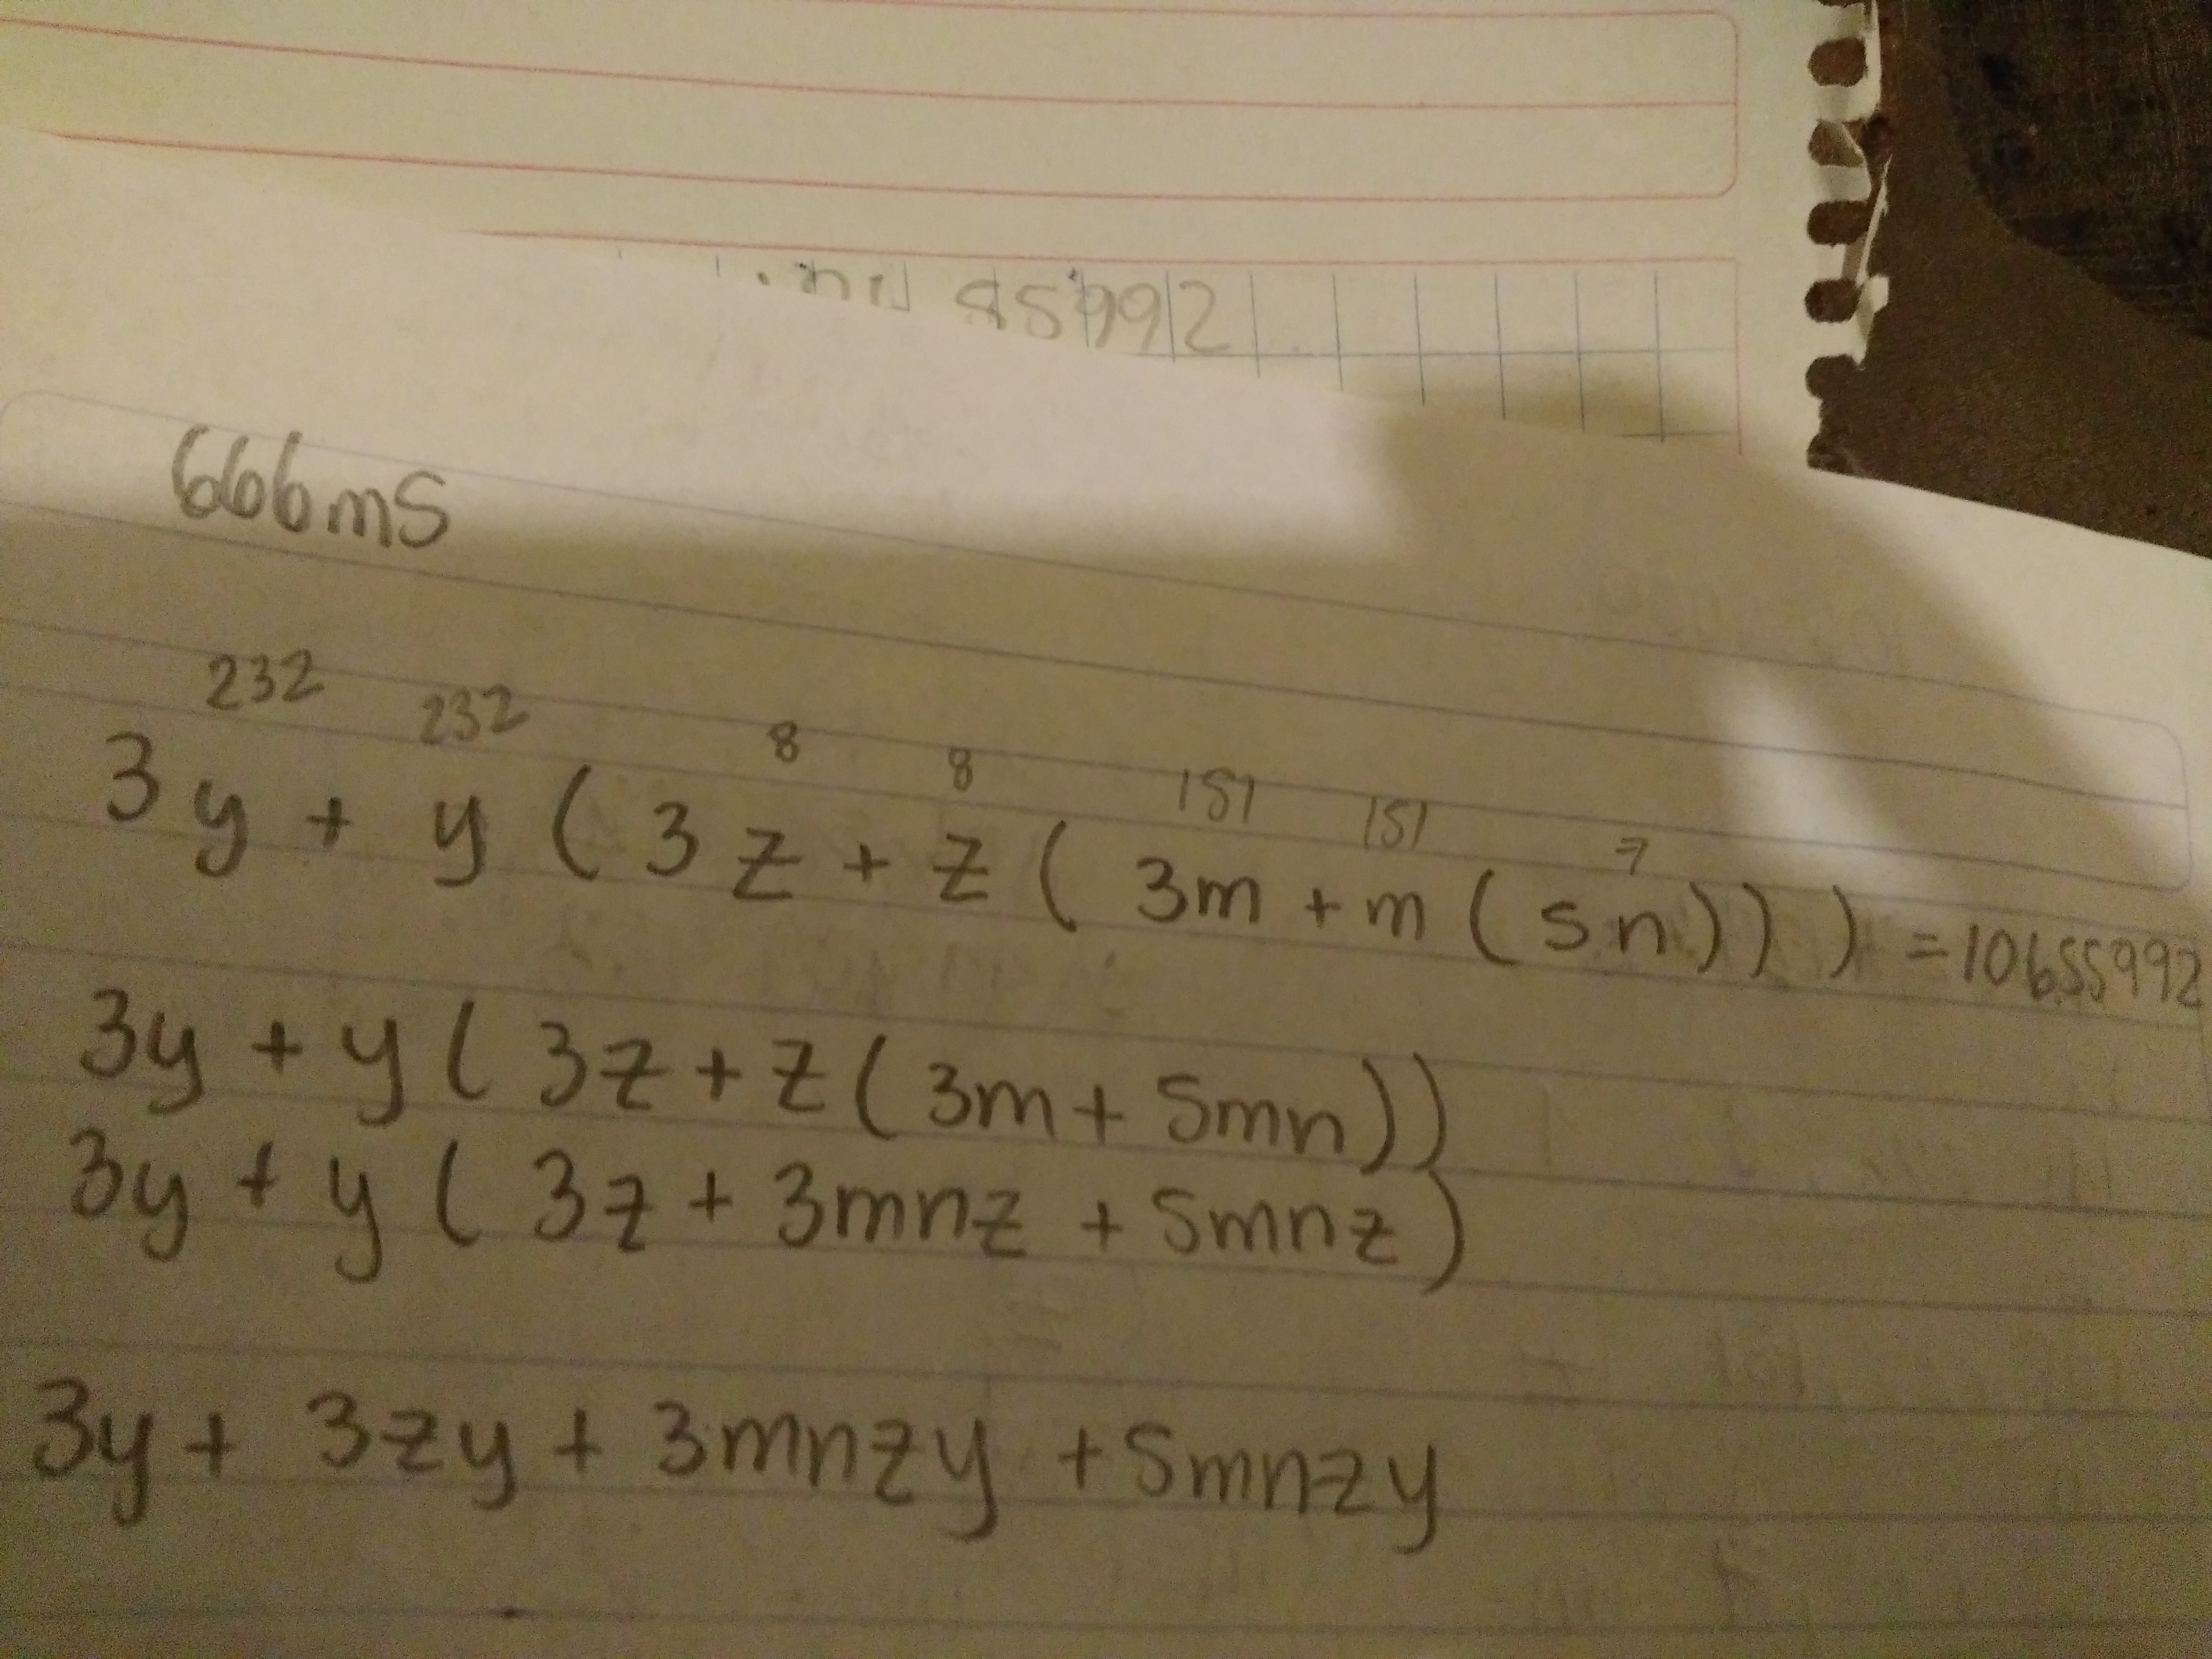 85992
666ms
232 232 8 8 151 151 7
3y + y ( 3z + z ( 3m + m ( 5n ) ) ) = 10655992
3y + y ( 3z + z ( 3m + 5mn ) )
3y + y ( 3z + 3mnz + 5mnz )
3y + 3zy + 3mnzy + 5mnzy